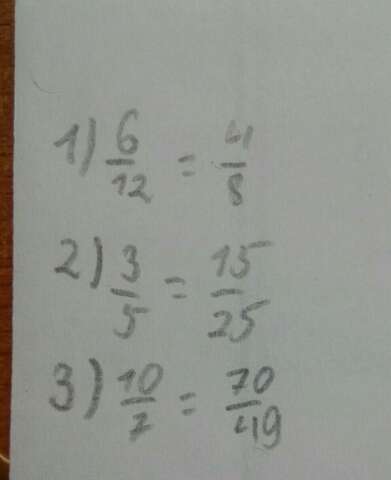 1) 6/12 = 4/8
2) 3/5 = 15/25
3) 10/7 = 70/49